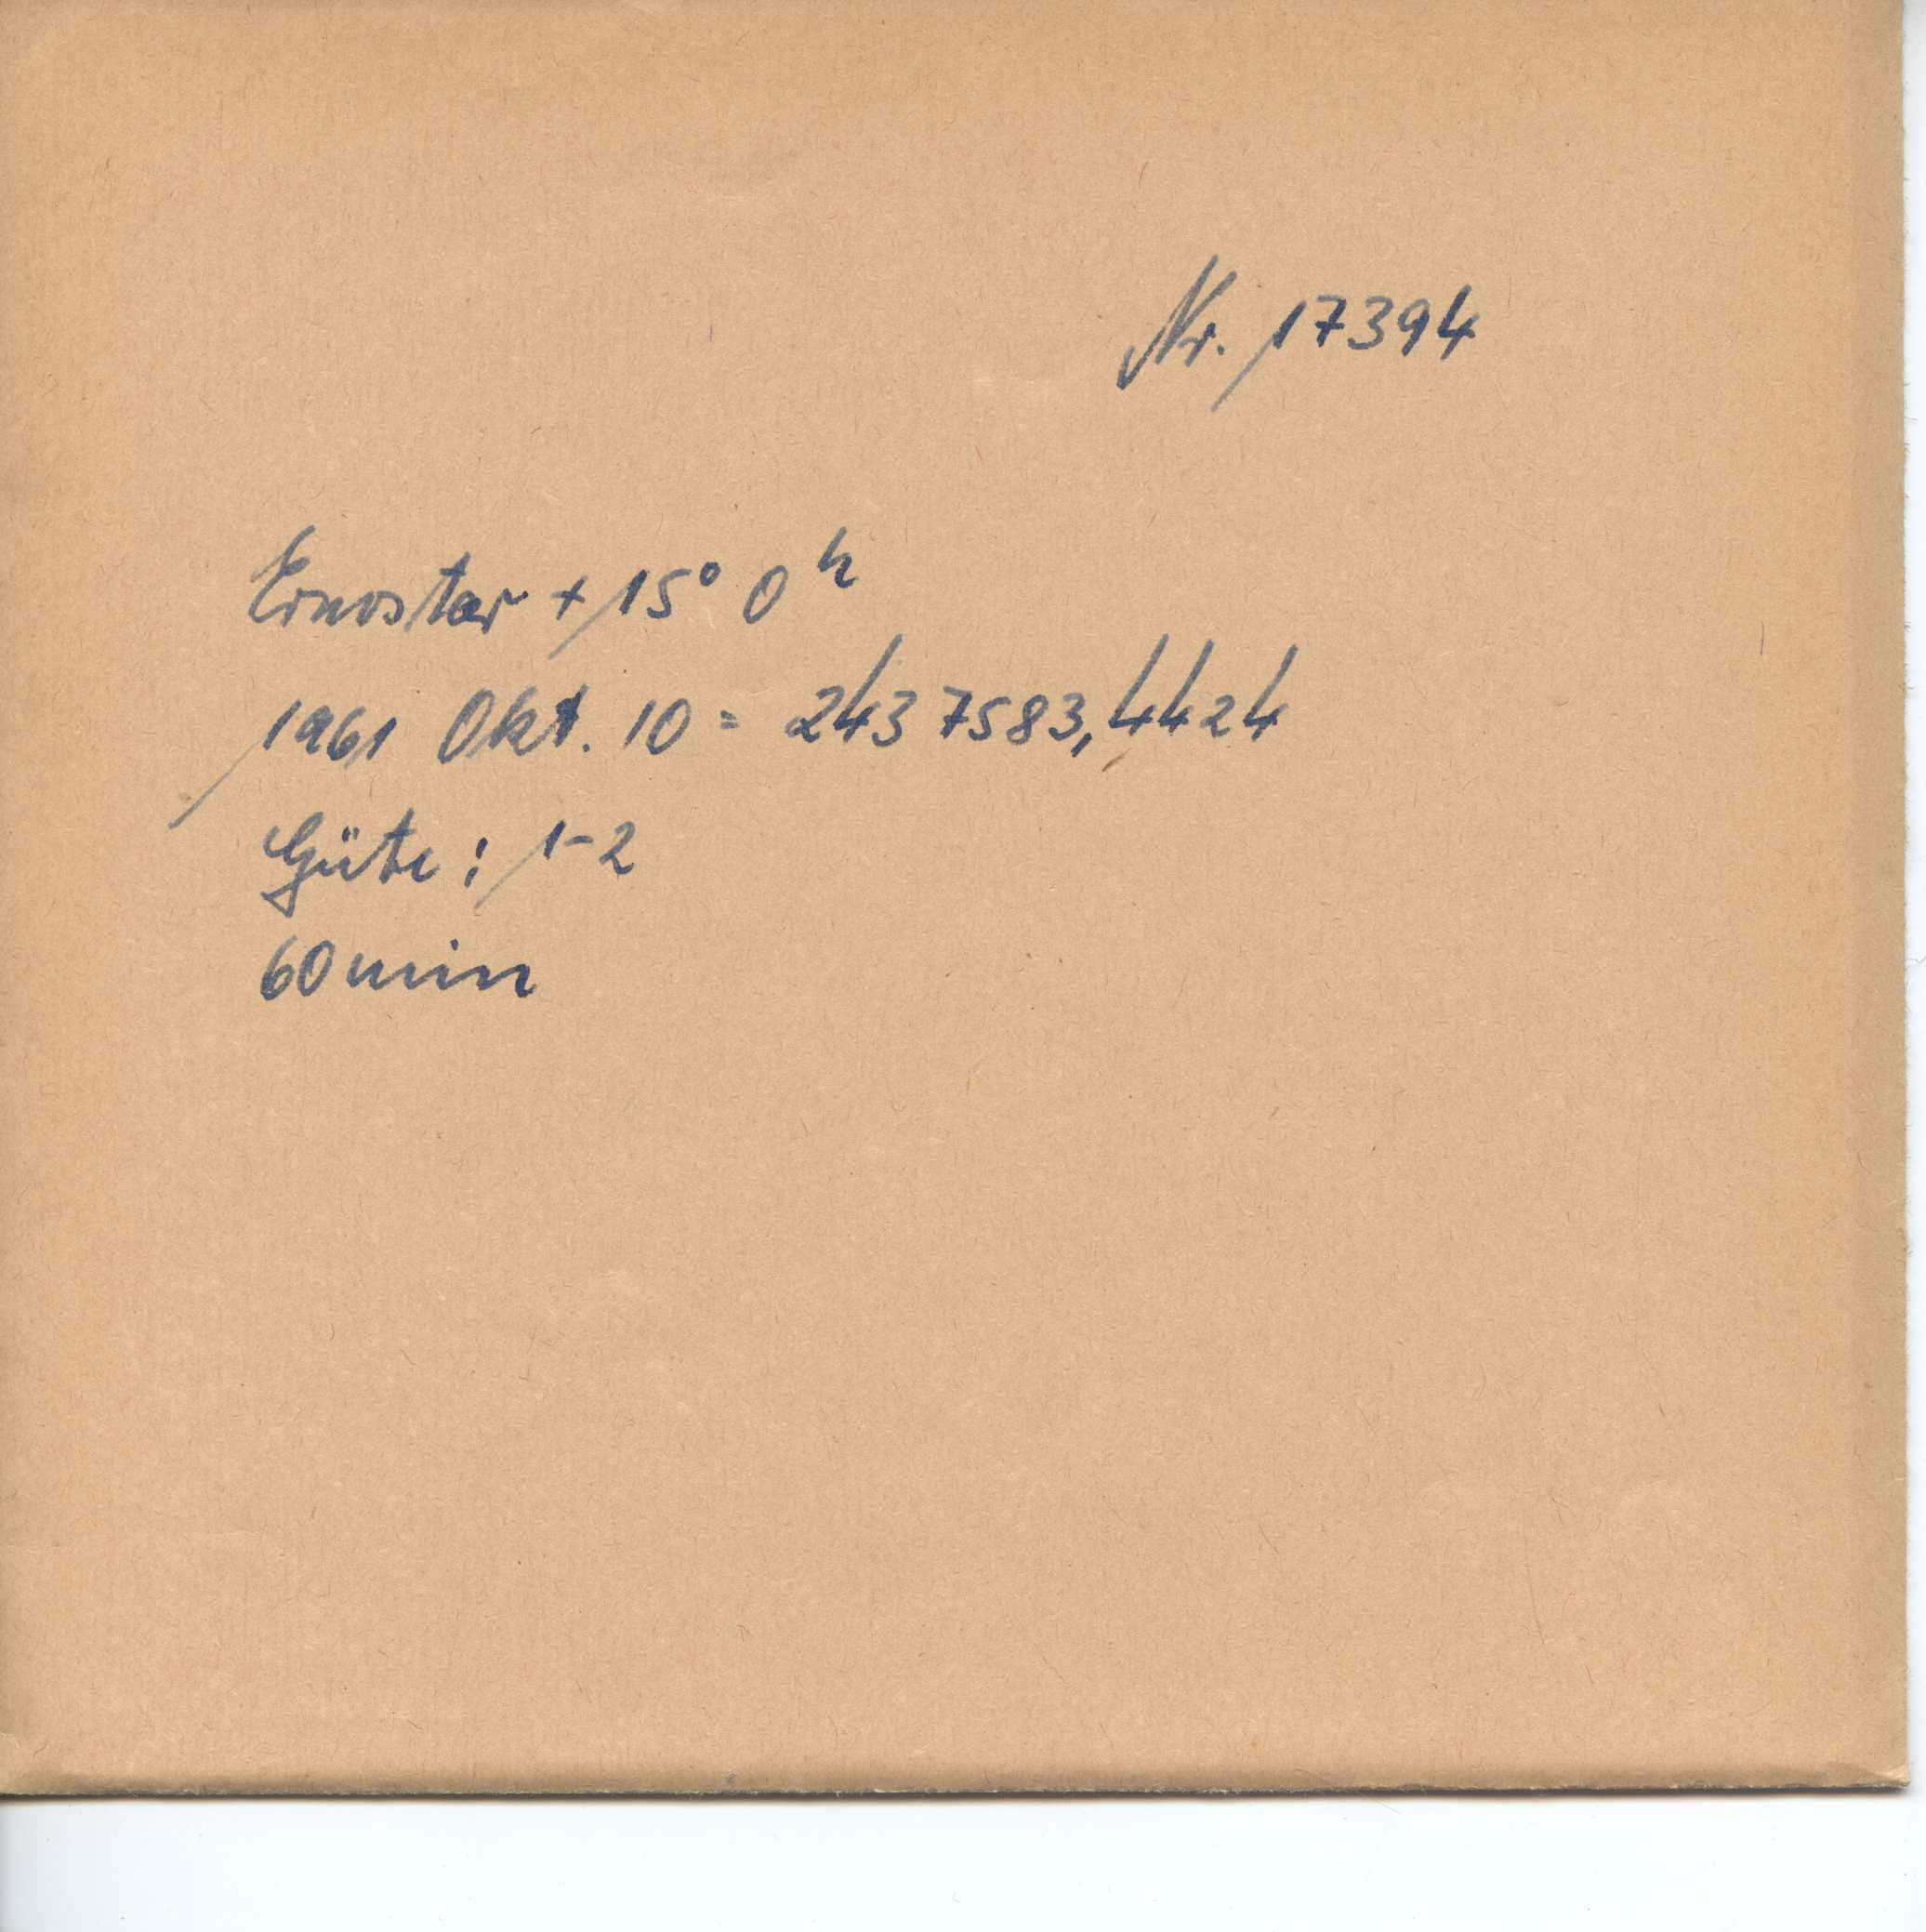 Nr. 17394
Ernostar + 15° 0ʰ
1961 Okt. 10 = 243 7583,4424
Güte: 1-2
60 min